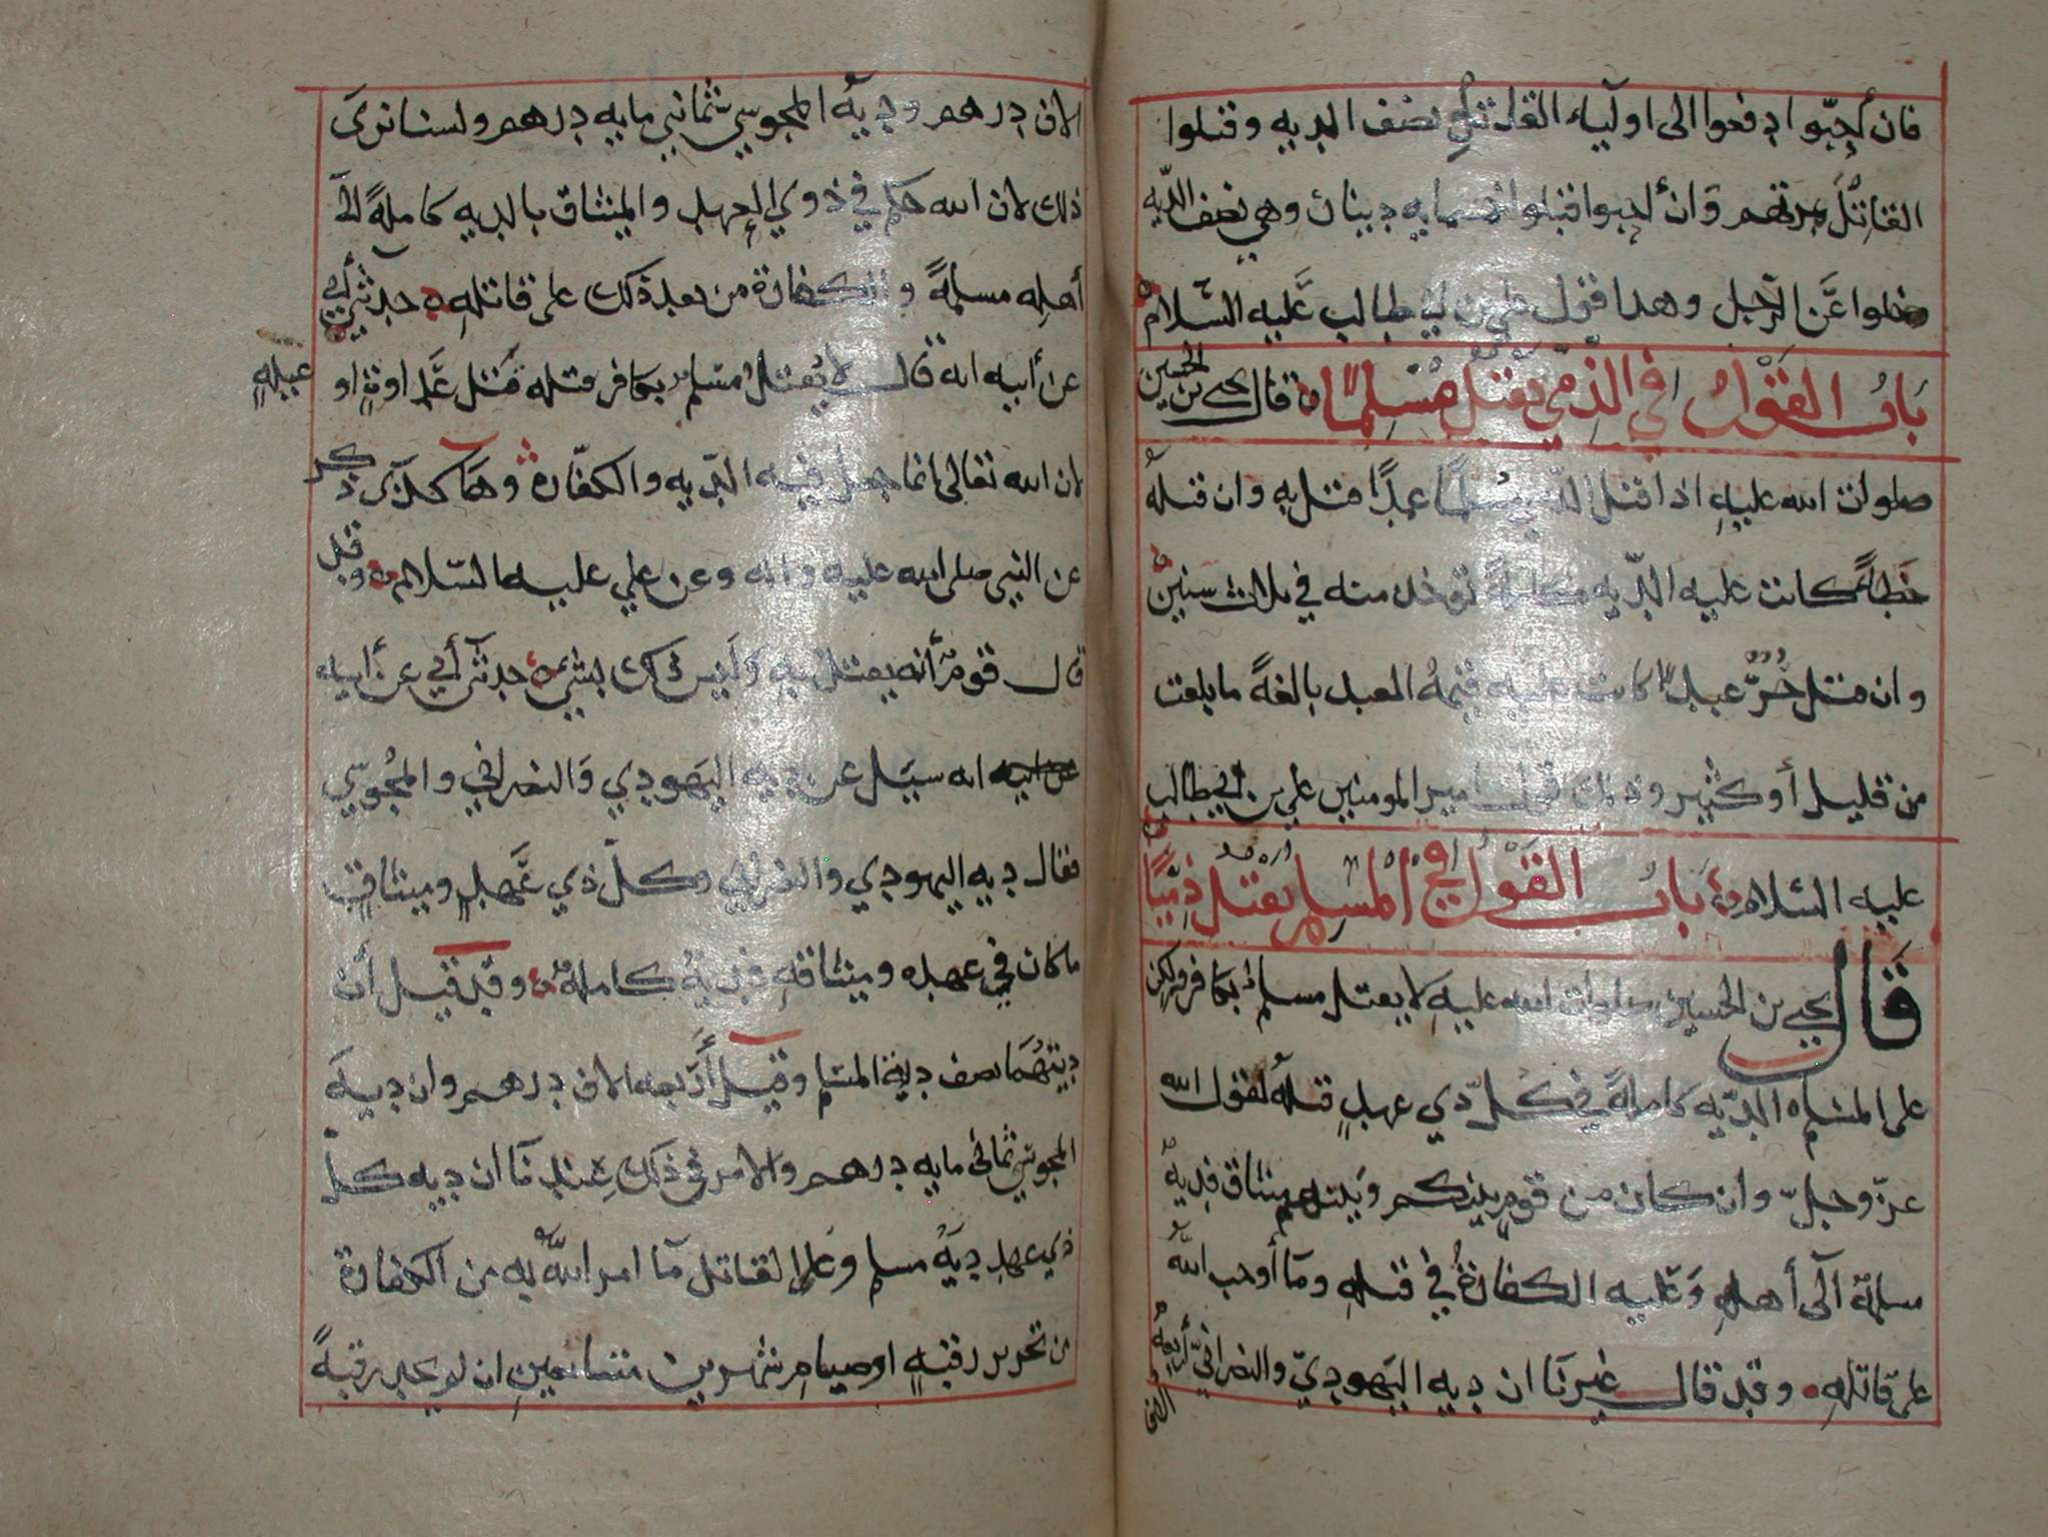 فان أحبوا دفعوا الى اوليآء القاتل نصف الديه وقتلوا
القاتل بمرتهم وان أحبوا قبلوا خمسمايه دينار وهي نصف الديه
وخلوا عن الرجل وهذا قول علي بن ابي طالب عليه السلام
باب القول في الذمي يقتل مسلما قال يحيى بن الحسين
صلوات الله عليه اذا قتل الذمي مسلما عمدا قتل به وان قتله
خطاء كانت عليه الديه كاملة توخذ منه في ثلاث سنين
وان قتل حر عبدا كانت عليه قيمة العبد بالغة ما بلغت
من قليل أو كثير وذلك قول امير المومنين علي بن ابي طالب
عليه السلام باب القول في المسلم يقتل ذميا
قال يحيى بن الحسين صلوات الله عليه لا يقتل مسلم بكافر ولكن
على المسلم الديه كاملة في كل ذي عهد قتله لقول الله
عز وجل وان كان من قوم بينكم وبينهم ميثاق فدية
مسلمة الى أهله وعليه الكفارة في قتله وما أوجب الله
على قاتله وقد قال غيرنا ان ديه اليهودي والنصراني أربعة
الاف
الاف درهم ودية المجوسي ثماني مايه درهم ولسنا نرى
ذلك لان الله حكم في ذوي العهد والميثاق بالديه كاملة الى
أهله مسلمة والكفارة من بعد ذلك على قاتله حدثني أبي
عن أبيه انه قال لا يقتل مسلم بكافر قتله قتل عداوة او
غيله
لان الله تعالى انما جعل فيه الديه والكفارة وهاكذى ذكر
عن النبي صلى الله عليه واله وعن علي عليه السلام وقد
قال قوم أنه يقتل به وليس ذلك بشيء حدثني أبي عن أبيه
عن ابيه انه سيل عن ديه اليهودي والنصراني والمجوسي
فقال ديه اليهودي والنصراني وكل ذي عهد وميثاق
ما كان في عهده وميثاقه فدية كاملة وقد قيل أن
ديتهما نصف دية المسلم وقيل أربعه الاف درهم وان دية
المجوسي ثماني مايه درهم والامر في ذلك عندنا ان ديه كل
ذي عهد دية مسلم وعلى القاتل ما امر الله به من الكفارة
من تحرير رقبة او صيام شهرين متتابعين ان لم يجد رقبة